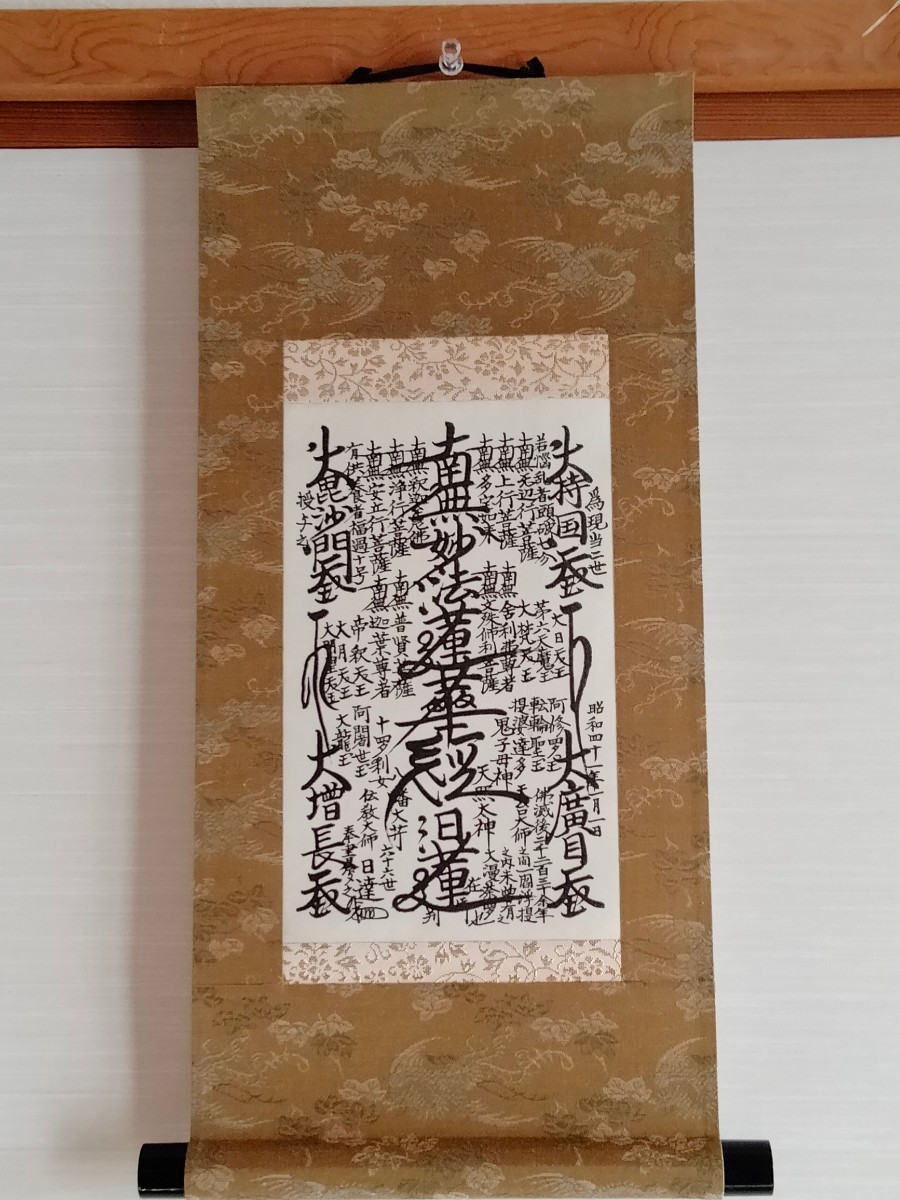 爲現当二世
昭和四十一年一月一日
大持国天王
大廣目天王
若悩乱者頭破七分
南無無辺行菩薩
南無上行菩薩
南無多宝如来
大日天王
第六天魔王
大梵天王
南無舎利弗尊者
南無文殊師利菩薩
阿修羅王
転輪聖王
提婆達多
鬼子母神
天照大神
天台大師
佛滅後二千二百三十余年
之間一閻浮提
之内未曽有之
大漫荼羅也
南無妙法蓮華経
日蓮
在
判
南無釈迦牟尼佛
南無浄行菩薩
南無安立行菩薩
有供養者福過十号
南無普賢菩薩
南無迦葉尊者
帝釈天王
大月天王
大明星天王
十羅刹女
阿闍世王
大龍王
八幡大菩薩
伝教大師
六十六世
日達
奉書写之
大毘沙門天王
大増長天王
授与之